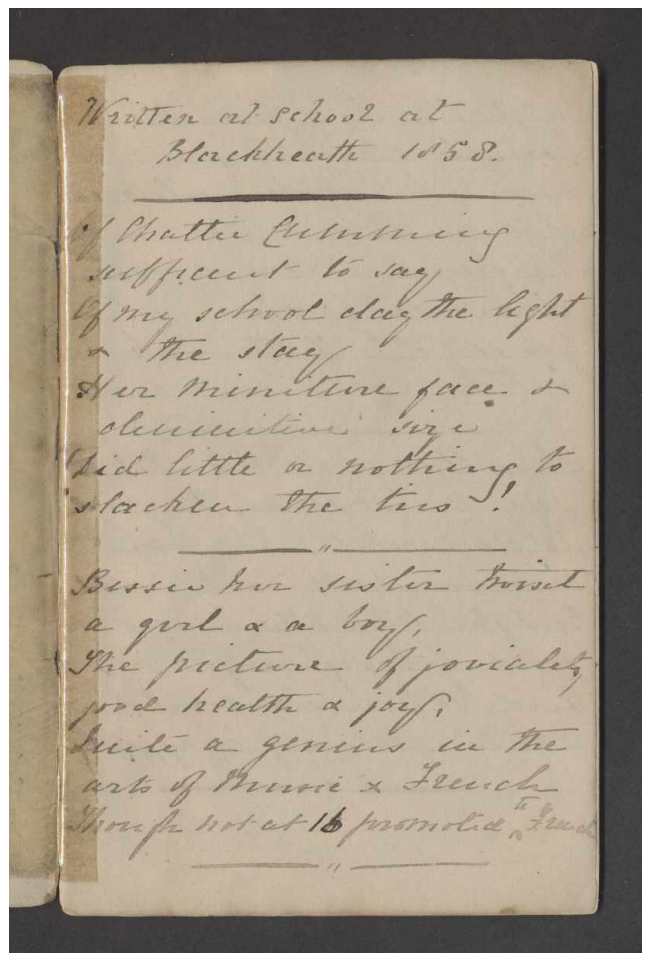 Written at school at
Blackheath 1858.
Of Chattie Cumming
sufficient to say
Of my school day the light
& the stay
Her miniture face &
diminitive size
Did little or nothing to
slacken the ties!
Bessie her sister twixt
a girl & a boy,
The picture of joviality
good health & joy,
Quite a genius in the
arts of Music & French
Though not at 16 promoted to French